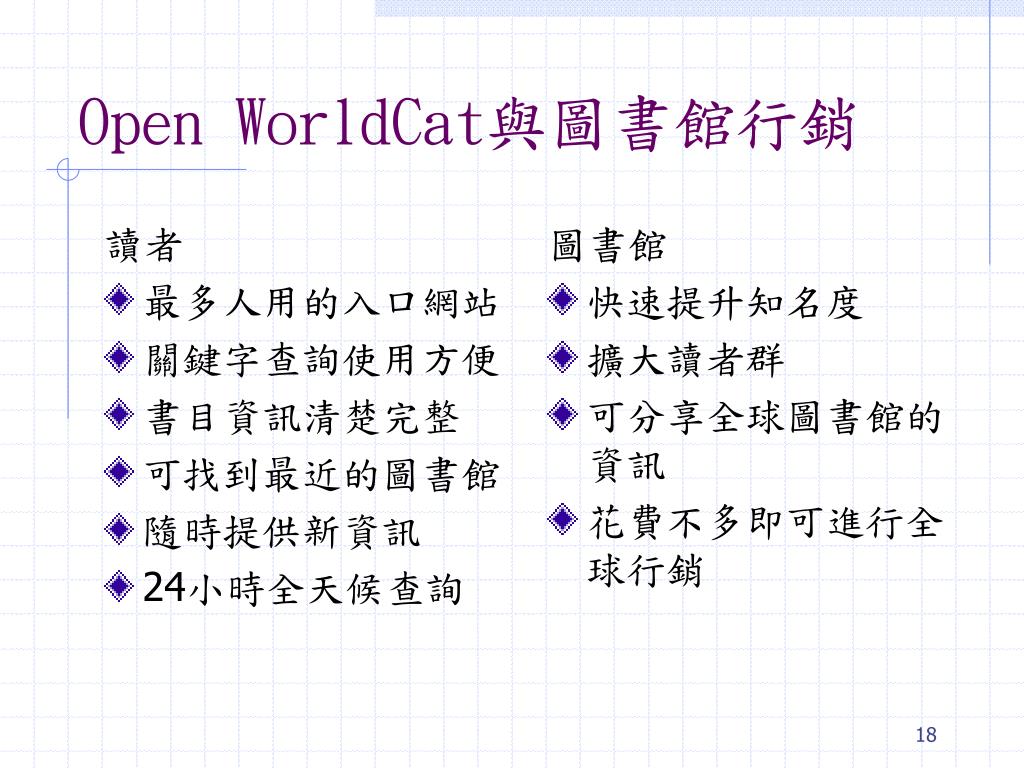 Open WorldCat與圖書館行銷
讀者
最多人用的入口網站
關鍵字查詢使用方便
書目資訊清楚完整
可找到最近的圖書館
隨時提供新資訊
24小時全天候查詢
圖書館
快速提升知名度
擴大讀者群
可分享全球圖書館的
資訊
花費不多即可進行全
球行銷
18